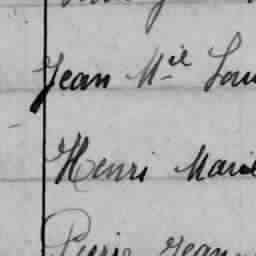 Jean M^el Lou
Henri Marie
Pierre Jean